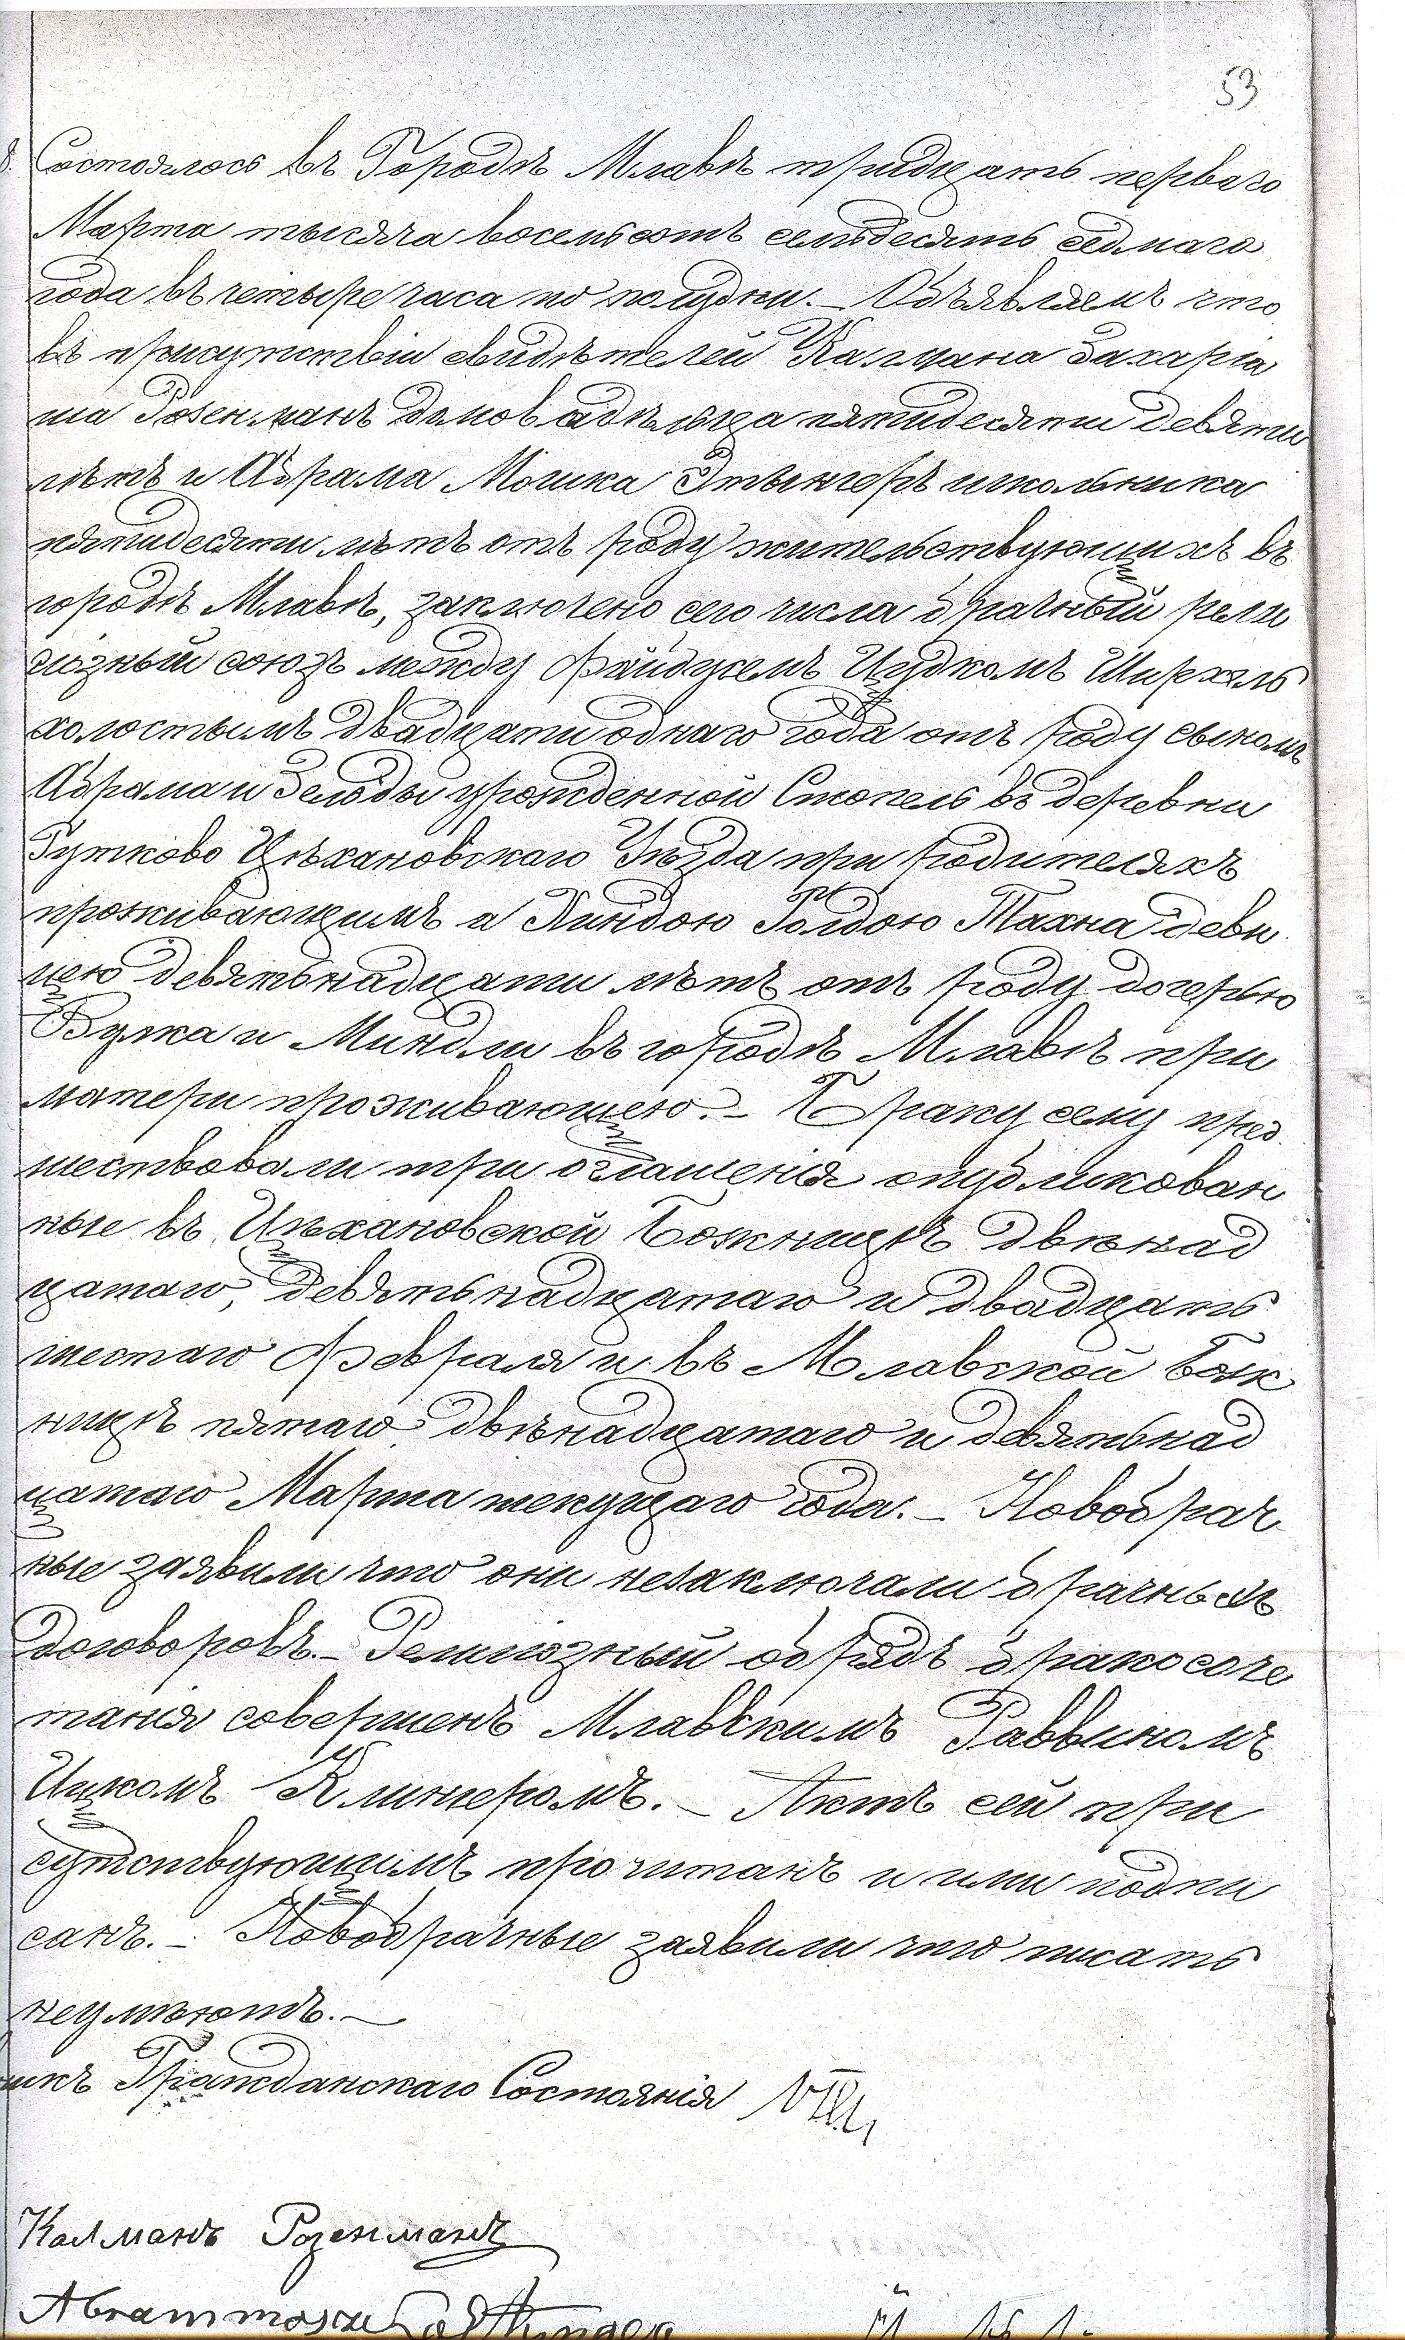 53
8. Состоялось въ Городѣ Млавѣ тридцать перваго
Марта тысяча восемьсотъ семьдесятъ седмаго
года въ четыре часа по полудни. – Объявляемъ что
въ присутствіи свидѣтелей Калмана Захаріа
ша Розенманъ домовладѣльца пятидесяти девяти
лѣтъ и Абрама Мошка Этынгеръ школьника
пятидесяти лѣтъ отъ роду жительствующихъ въ
городѣ Млавѣ, заключено сего числа брачный рели
гіозный союзъ между Файбусемъ Ицдкомъ
холостымъ двадцати однаго года отъ роду сыномъ
Абрама и Зельды урожденной Стопель въ деревни
Гутково Цѣхановскаго Уѣзда при родителяхъ
проживающимъ и Хиндою Голдою Тахна деви
цею девятьнадцати лѣтъ отъ роду дочерью
Вулка и Миндли въ городѣ Млавѣ при
матери проживающею. – Браку сему пред
шествовали три оглашенія опубликован
ные въ Цѣхановской Божницѣ двѣнад
цатаго, девятьнадцатаго и двадцать
шестаго Февраля и въ Млавской Бож
ницѣ пятаго, двѣнадцатаго и девятьнад
цатаго Марта текущаго года. – Новобрач
ные заявили что они незаключали брачныхъ
договоровъ. – Религіозный обрядъ бракосоче
танія совершенъ Млавскимъ Раввиномъ
Ицкомъ Клингеромъ. – Актъ сей при
сутствующимъ прочитанъ и ими подпи
санъ. – Новобрачные заявили что писать
неумѣютъ. –
никъ Гражданскаго Состоянія
Калманъ Розенманъ